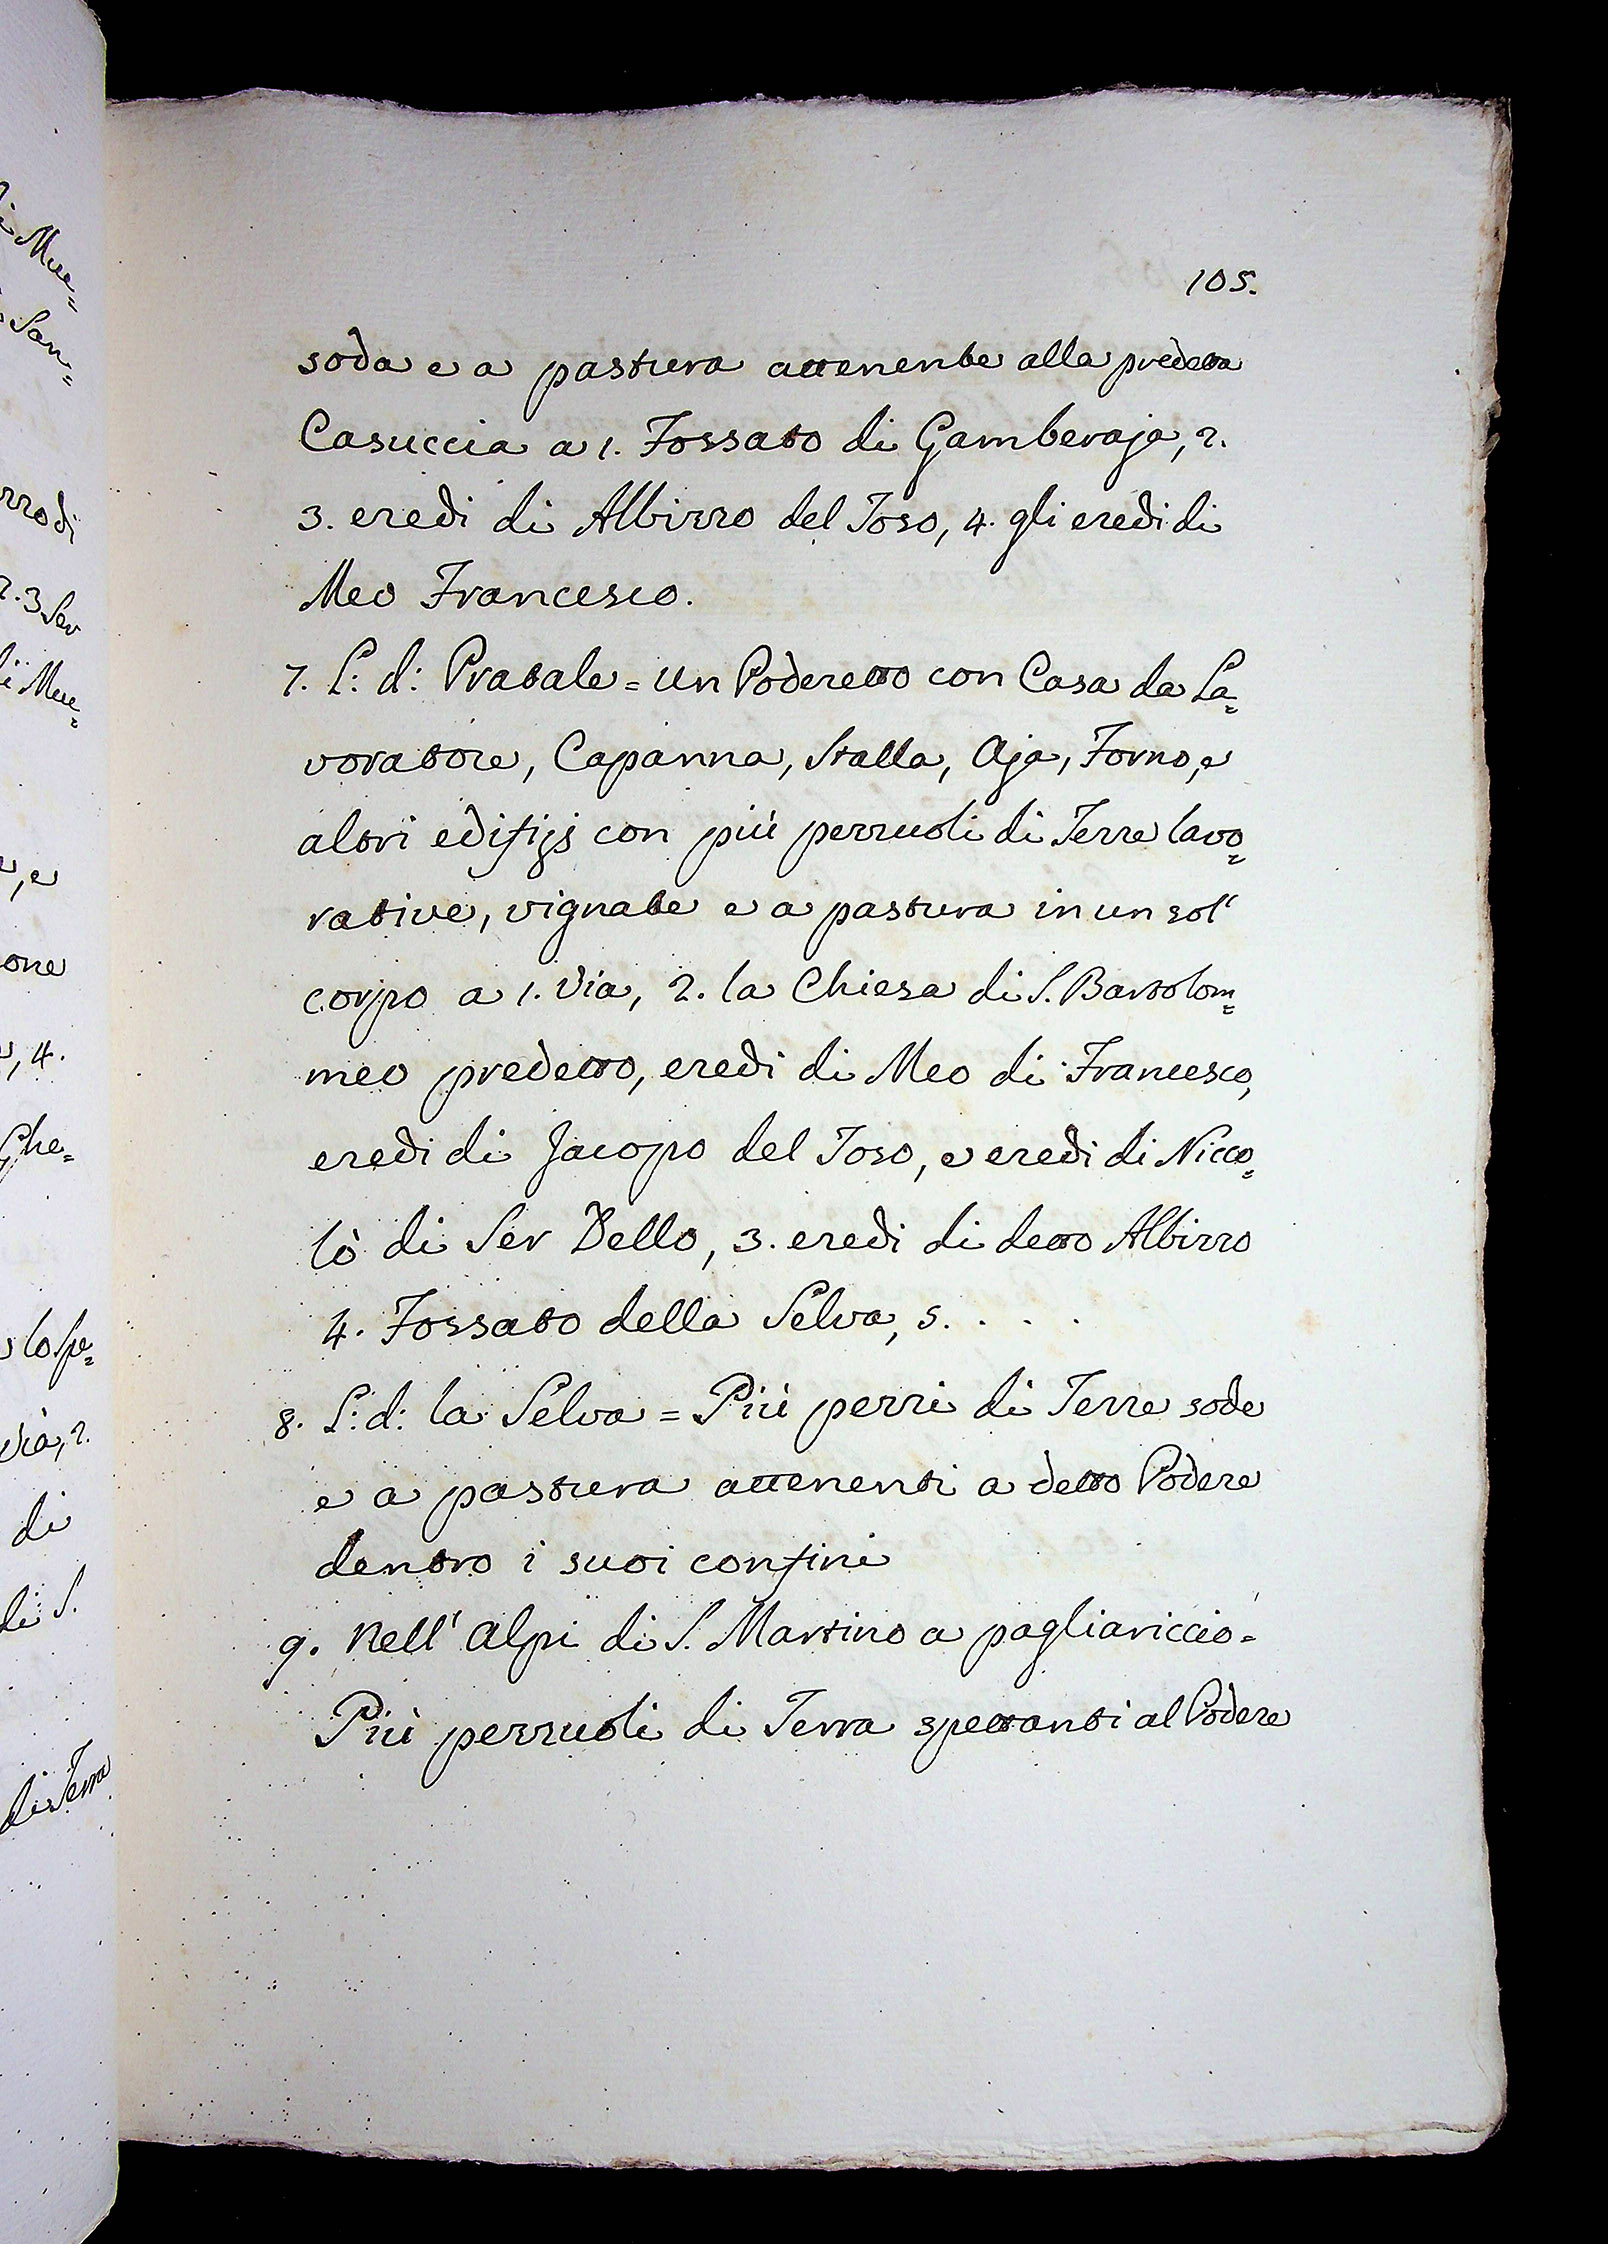 105.
soda e a pastura attenente alla predetta
Casuccia a 1. Fossato di Gamberaja, 2.
3. eredi di Albizzo del Toso, 4. gli eredi di
Meo Francesco.
7. L: d: Pratale = un Poderetto con Casa da La=
voratore, Capanna, Stalla, Aja, Forno, e
altri edifizj con più pezzuoli di Terre lavo=
rative, vignate e a pastura in un sol'
corpo a 1. Via, 2. la Chiesa di S. Bartolom=
meo predetto, eredi di Meo di Francesco,
eredi di Jacopo del Toso, e eredi di Nicco=
lò di Ser Bello, 3. eredi di detto Albizzo
4. Fossato della Selva, 5. . . . .
8. L: d: la Selva = Più pezzi di Terre sode
e a pastura attenenti a detto Podere
dentro i suoi confini
9. Nell' Alpi di S. Martino a pagliariccio =
Più pezzuoli di Terra spettanti al Podere